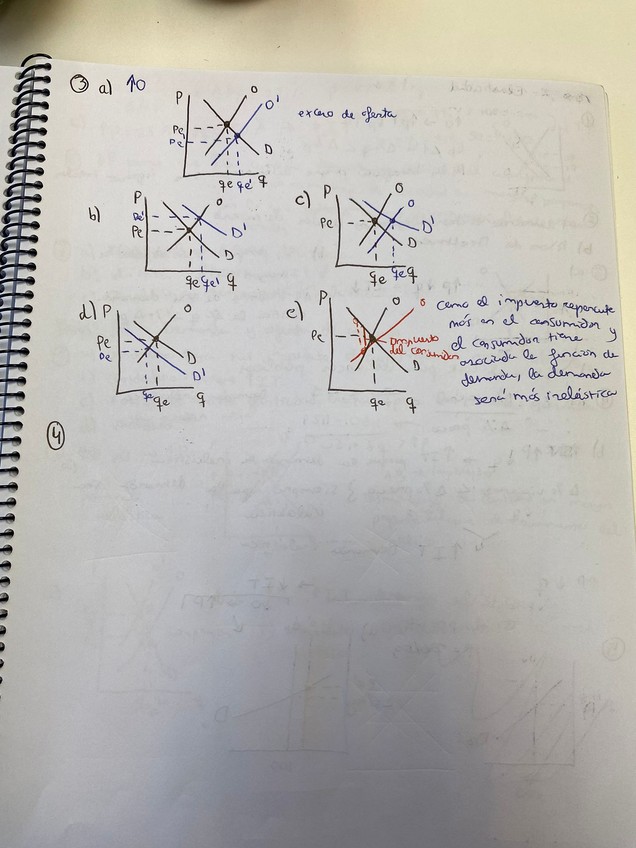 ③ a) ↑O
P
O
O'
exceso de oferta
Pe
Pe'
D
qe qe' q
b)
P
O
Pe'
Pe
D'
D
qe qe' q
c)
P
O
O
Pe
D'
D
qe qe q
d) P
O
Pe
Pe
D
D'
qe qe q
e)
P
O
O
Pe
impuesto
del consumidor
D
qe q
como el impuesto repercute
más en el consumidor y
el consumidor tiene
asociada la función de
demanda, la demanda
será más inelástica
④